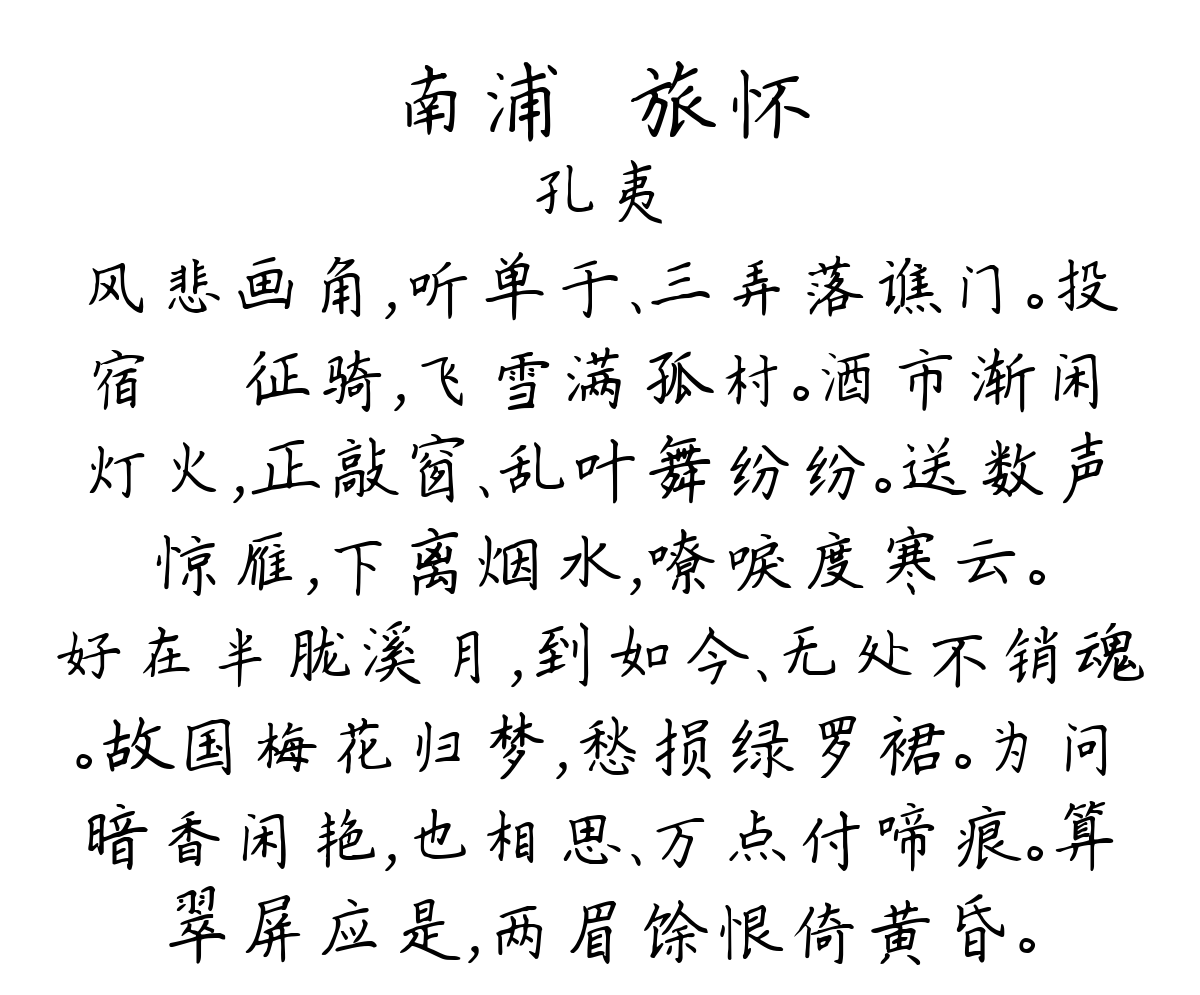 南浦 旅怀
孔夷
风悲画角,听单于、三弄落谯门。投
宿 征骑,飞雪满孤村。酒市渐闲
灯火,正敲窗、乱叶舞纷纷。送数声
惊雁,下离烟水,嘹唳度寒云。
好在半胧溪月,到如今、无处不销魂
。故国梅花归梦,愁损绿罗裙。为问
暗香闲艳,也相思、万点付啼痕。算
翠屏应是,两眉馀恨倚黄昏。